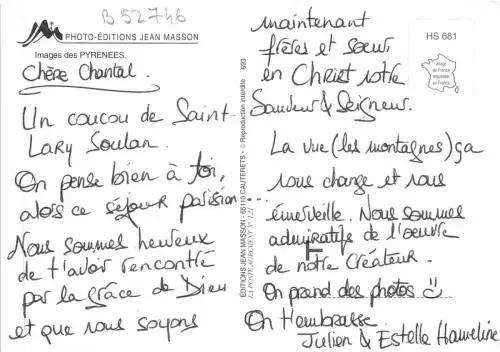 B 52746
PHOTO-ÉDITIONS JEAN MASSON
Images des PYRENEES.
Chère Chantal.
Un coucou de Saint-
Lary Soulan.
On pense bien à toi,
alors ce séjour parisien...
Nous sommes heureux
de t'avoir rencontré
par la Grâce de Dieu
et que nous soyons
ÉDITIONS JEAN MASSON - 65110 CAUTERETS - © Reproduction interdite 693
LA POSTE AGREMENT N° 121
maintenant
frères et sœur
en Christ notre
Sauveur & Seigneur.
La vue (les montagnes) ça
nous change et nous
émerveille. Nous sommes
admiratifs de l'œuvre
de notre Créateur.
On prend des photos
On t'embrasse.
Julien & Estelle Hameline
HS 681
Image
de France
imprimée
en France